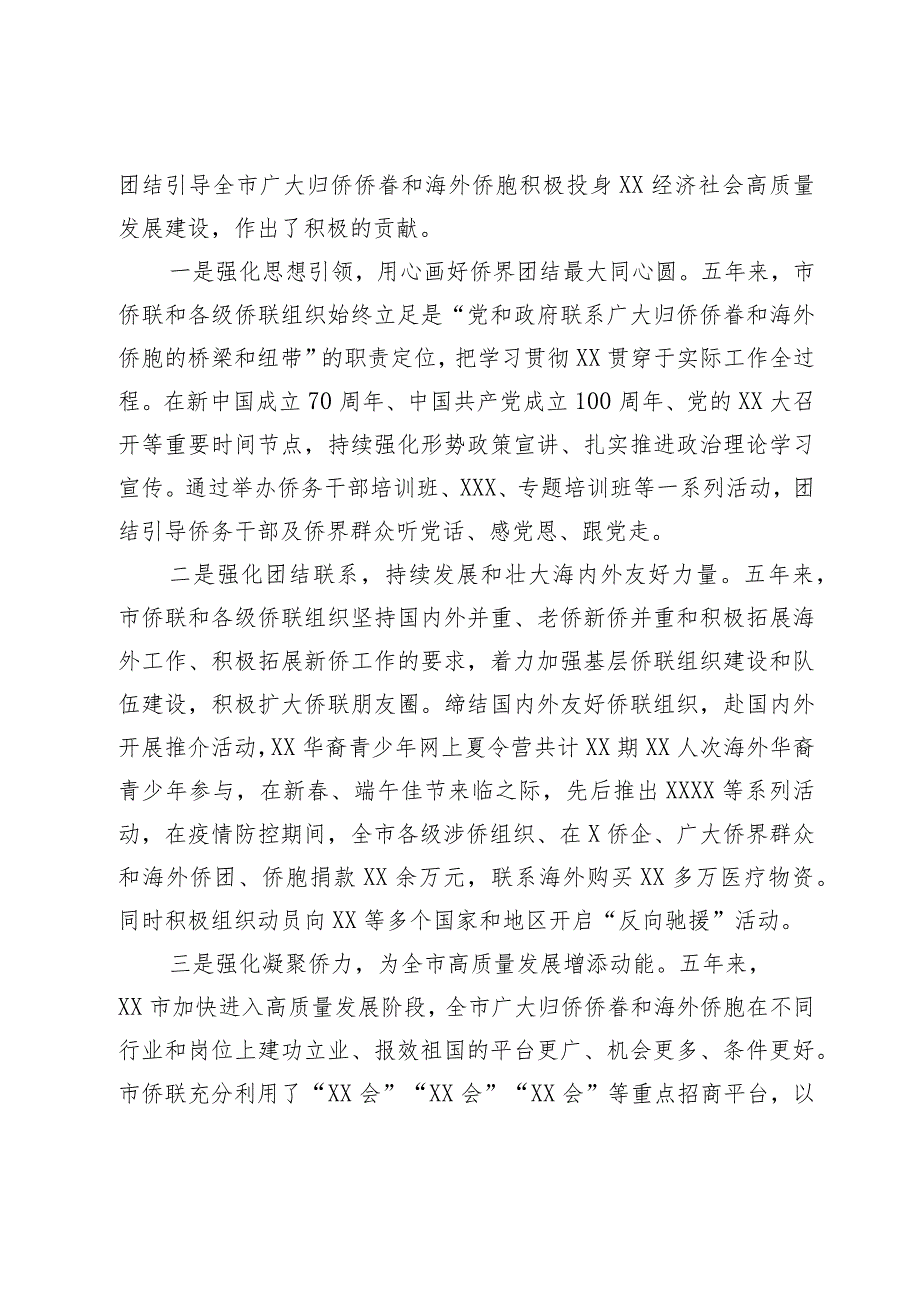 团结引导全市广大归侨侨眷和海外侨胞积极投身 XX 经济社会高质量
发展建设，作出了积极的贡献。
一是强化思想引领，用心画好侨界团结最大同心圆。五年来，市
侨联和各级侨联组织始终立足是“党和政府联系广大归侨侨眷和海外
侨胞的桥梁和纽带”的职责定位，把学习贯彻 XX 贯穿于实际工作全过
程。在新中国成立 70 周年、中国共产党成立 100 周年、党的 XX 大召
开等重要时间节点，持续强化形势政策宣讲、扎实推进政治理论学习
宣传。通过举办侨务干部培训班、XXX、专题培训班等一系列活动，团
结引导侨务干部及侨界群众听党话、感党恩、跟党走。
二是强化团结联系，持续发展和壮大海内外友好力量。五年来，
市侨联和各级侨联组织坚持国内外并重、老侨新侨并重和积极拓展海
外工作、积极拓展新侨工作的要求，着力加强基层侨联组织建设和队
伍建设，积极扩大侨联朋友圈。缔结国内外友好侨联组织，赴国内外
开展推介活动，XX 华裔青少年网上夏令营共计 XX 期 XX 人次海外华裔
青少年参与，在新春、端午佳节来临之际，先后推出 XXXX 等系列活
动，在疫情防控期间，全市各级涉侨组织、在 X 侨企、广大侨界群众
和海外侨团、侨胞捐款 XX 余万元，联系海外购买 XX 多万医疗物资。
同时积极组织动员向 XX 等多个国家和地区开启“反向驰援”活动。
三是强化凝聚侨力，为全市高质量发展增添动能。五年来，
XX 市加快进入高质量发展阶段，全市广大归侨侨眷和海外侨胞在不同
行业和岗位上建功立业、报效祖国的平台更广、机会更多、条件更好。
市侨联充分利用了“XX 会”“XX 会”“XX 会”等重点招商平台，以